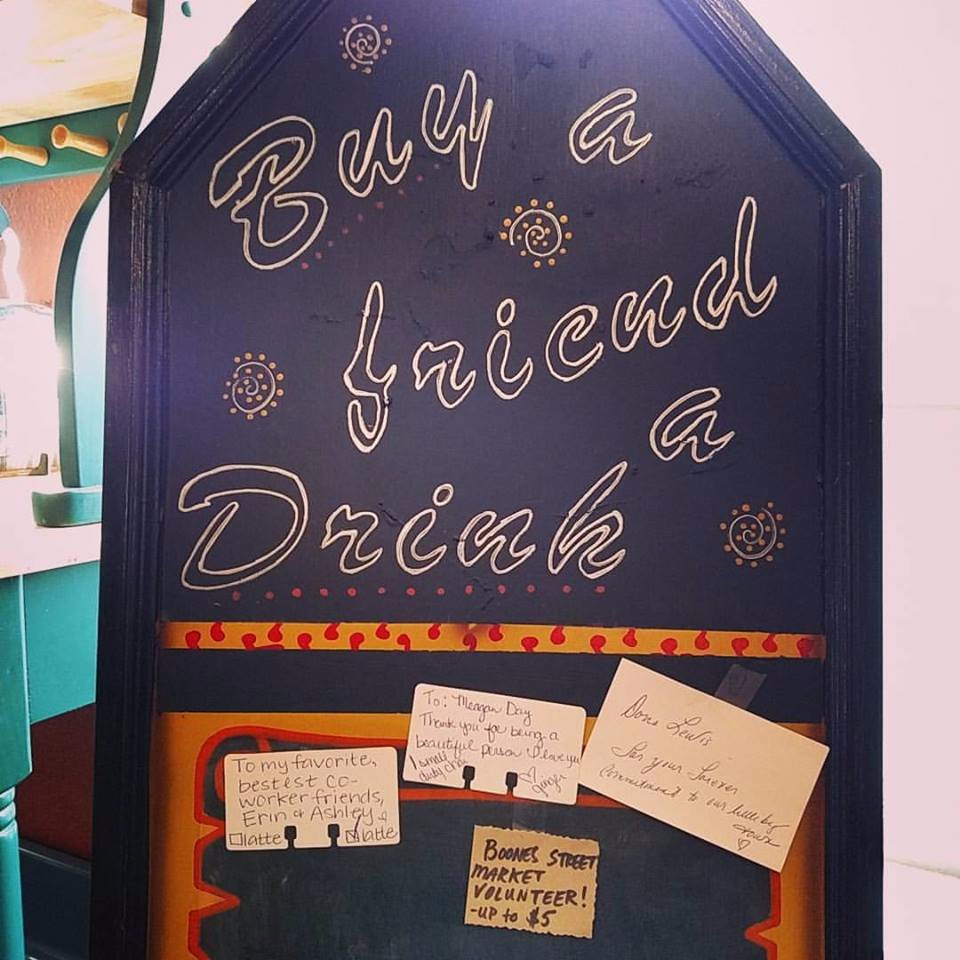 Buy a
friend
a
Drink
To my favorite,
bestest co-
worker friends,
Erin & Ashley
latte latte
To: Meagan Day
Thank you for being a
beautiful person I love you
1 small
dirty chai
Ginger
Lewis
for your
Commitment to our little big
town
BOONES STREET
MARKET
VOLUNTEER!
-UP to $5